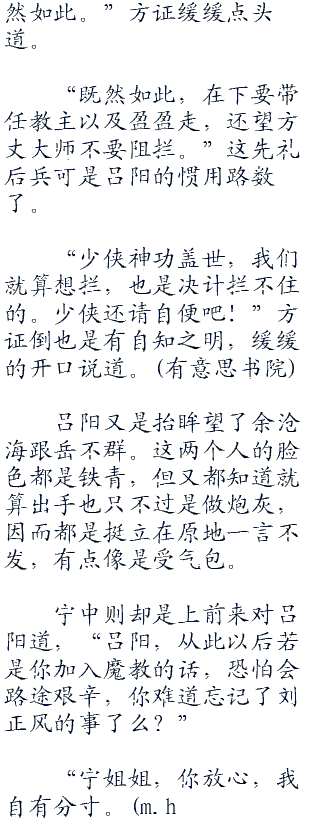 然如此。”方证缓缓点头
道。
“既然如此，在下要带
任教主以及盈盈走，还望方
丈大师不要阻拦。”这先礼
后兵可是吕阳的惯用路数
了。
“少侠神功盖世，我们
就算想拦，也是决计拦不住
的。少侠还请自便吧！”方
证倒也是有自知之明，缓缓
的开口说道。(有意思书院)
吕阳又是抬眸望了余沧
海跟岳不群。这两个人的脸
色都是铁青，但又都知道就
算出手也只不过是做炮灰，
因而都是挺立在原地一言不
发，有点像是受气包。
宁中则却是上前来对吕
阳道，“吕阳，从此以后若
是你加入魔教的话，恐怕会
路途艰辛，你难道忘记了刘
正风的事了么？”
“宁姐姐，你放心，我
自有分寸。(m.h